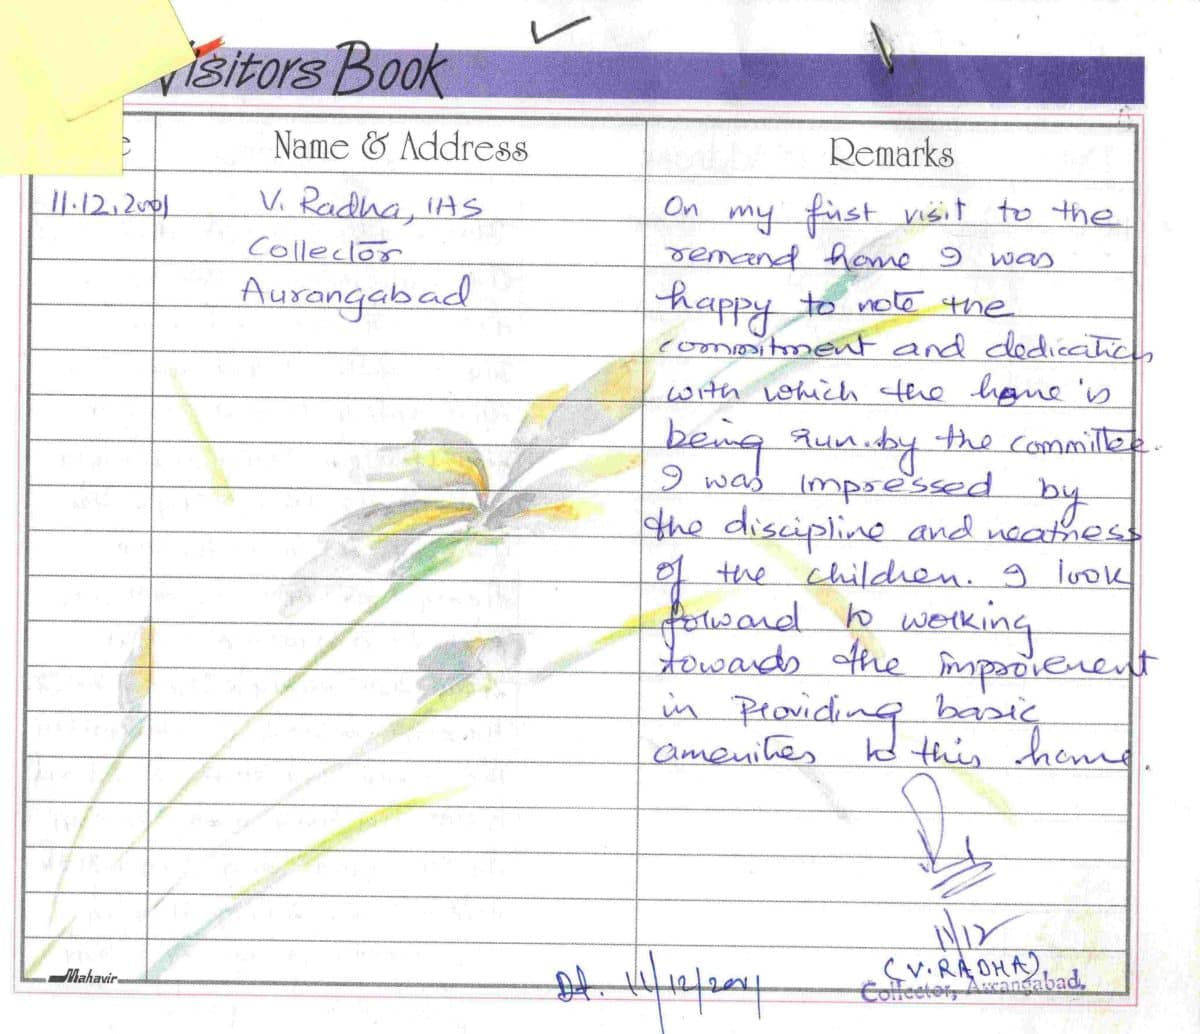 Visitors Book
e Name & Address Remarks
11.12.2001
V. Radha, IAS
Collector
Aurangabad
On my first visit to the
remand home I was
happy to note the
commitment and dedication
with which the home is
being run by the committee.
I was impressed by
the discipline and neatness
of the children. I look
forward to working
towards the improvement
in Providing basic
amenities to this home.
11/12
(V. RADHA)
Collector, Aurangabad.
Dt. 11/12/2001
Mahavir